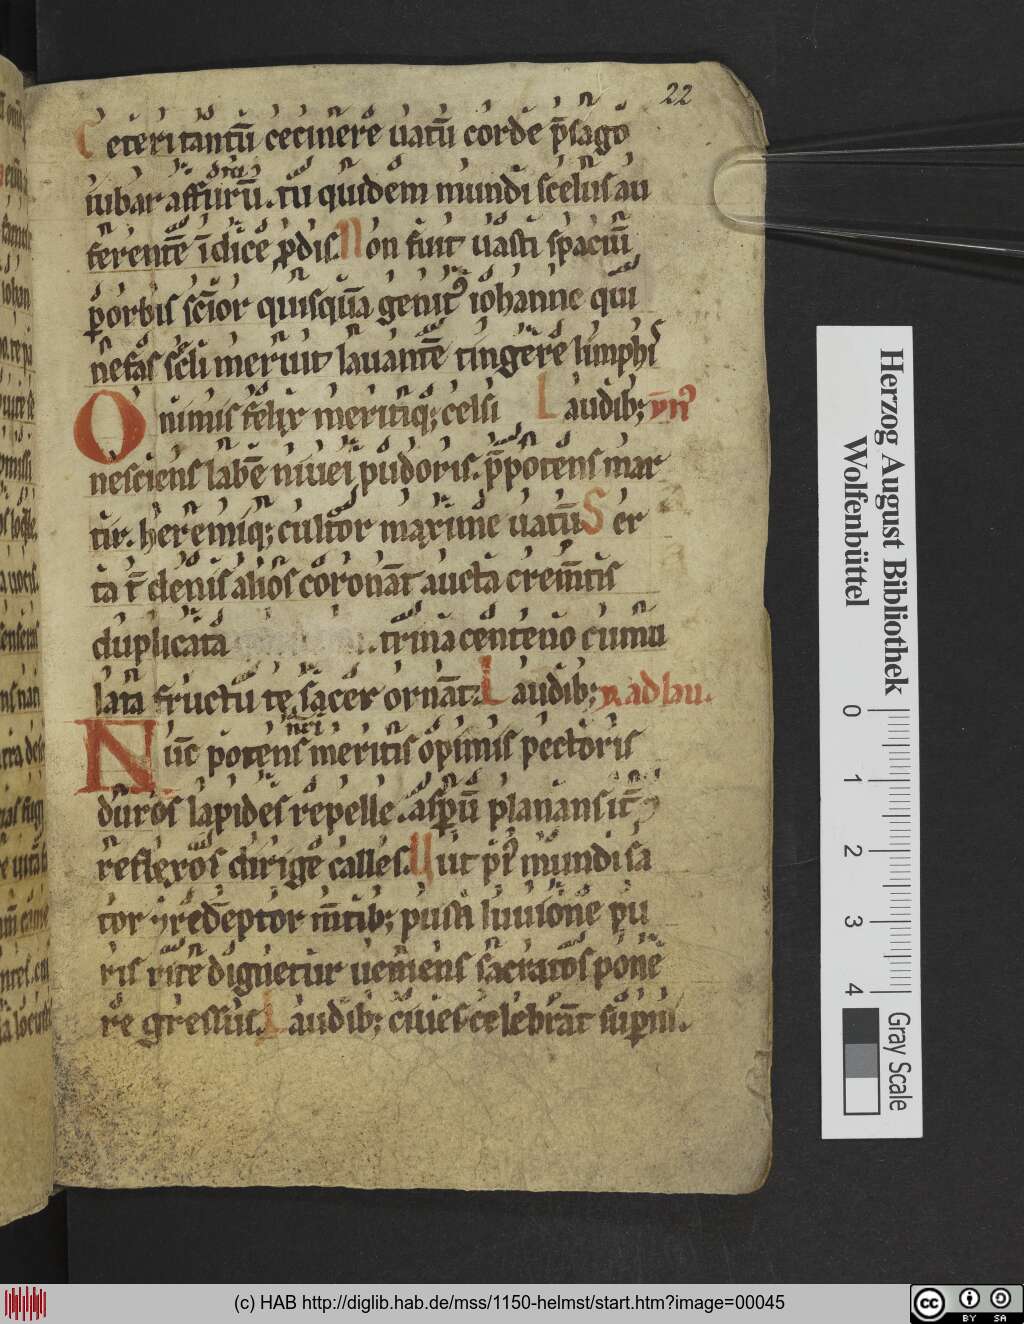 22
Ceteri tantū cecinere uatū corde p̄sago
iubar affuturū. tu quidem mundi scelus au
ferentē īdice prodis. Non fuit uasti spaciū
ꝑ orbis sc̄ior quisquā genitꝰ iohanne qui
nefas sc̄li meruit lauantē tingere limphis
O nimis felix meritiq; celsi Laudib; ymꝰ
nesciens labē niuei pudoris. p̄potens mar
tir. heremiq; cultor maxime uatū Ser
ta t̄ denis alios coronāt aucta crem̄tis
duplicata .trina centeno cumu
lata fructu te sacer ornāt. Laudib; ad lau.
Nūc potens nr̄i meritis opimis pectoris
duros lapides repelle. asꝑū planans it̄
reflexos dirige calles. Ut pī mundi sa
tor et redēptor m̄tib; pulsa liuuione pu
ris rite dignetur ueniens sacratos pone
re gressus. Laudib; ciues celebrāt suꝑni.
Herzog August Bibliothek
Wolfenbüttel
0 1 2 3 4
Gray Scale
(c) HAB http://diglib.hab.de/mss/1150-helmst/start.htm?image=00045
cc BY SA